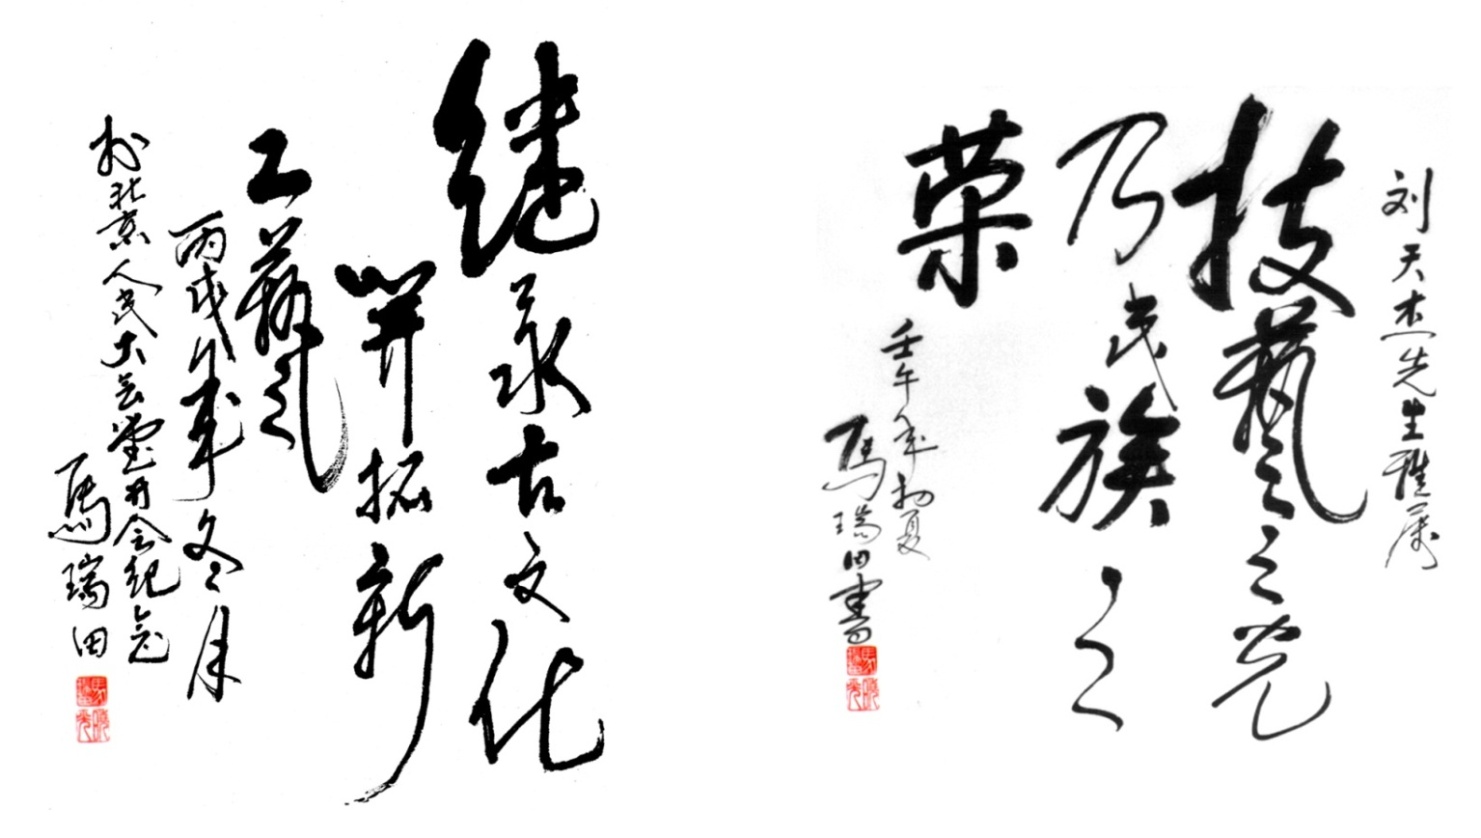 刘天杰先生雅属
技藝之光
乃民族之
荣
壬午年初夏
馬瑞田書
继承古文化
開拓新
工藝
丙戌年冬月
於北京人民大会堂开会纪念
馬瑞田